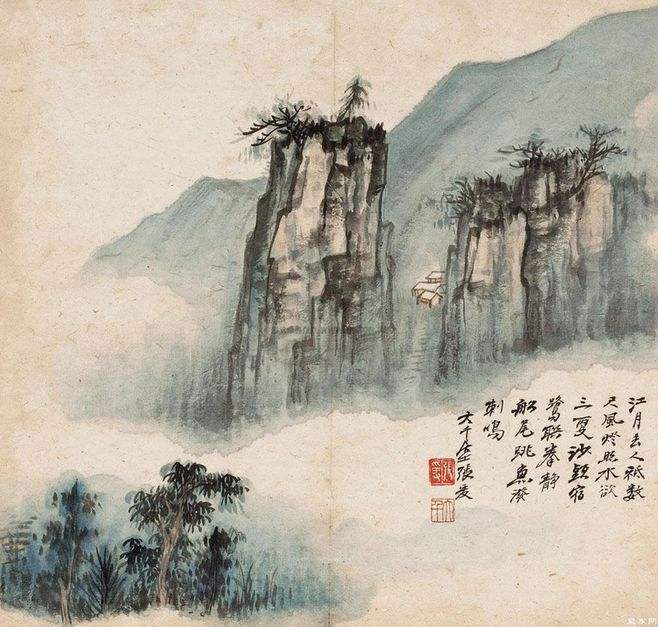 江月去人祇數
尺風燈照水欲
三更沙頭宿
鷺聯拳靜
船尾跳魚潑
剌鳴
大千居士張爰
張爰
大千